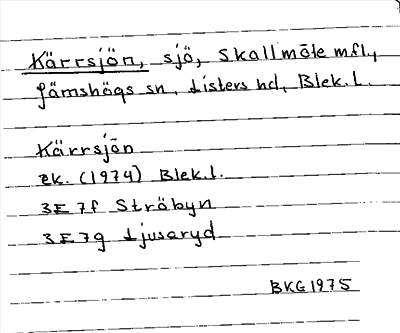 Kärrsjön, sjö, Skallmöle mfl.,
Jämshögs sn, Listers hd, Blek.l.
Kärrsjön
ek. (1974) Blek.l.
3E 7f Ströbyn
3E 7g Ljusaryd
BKG 1975